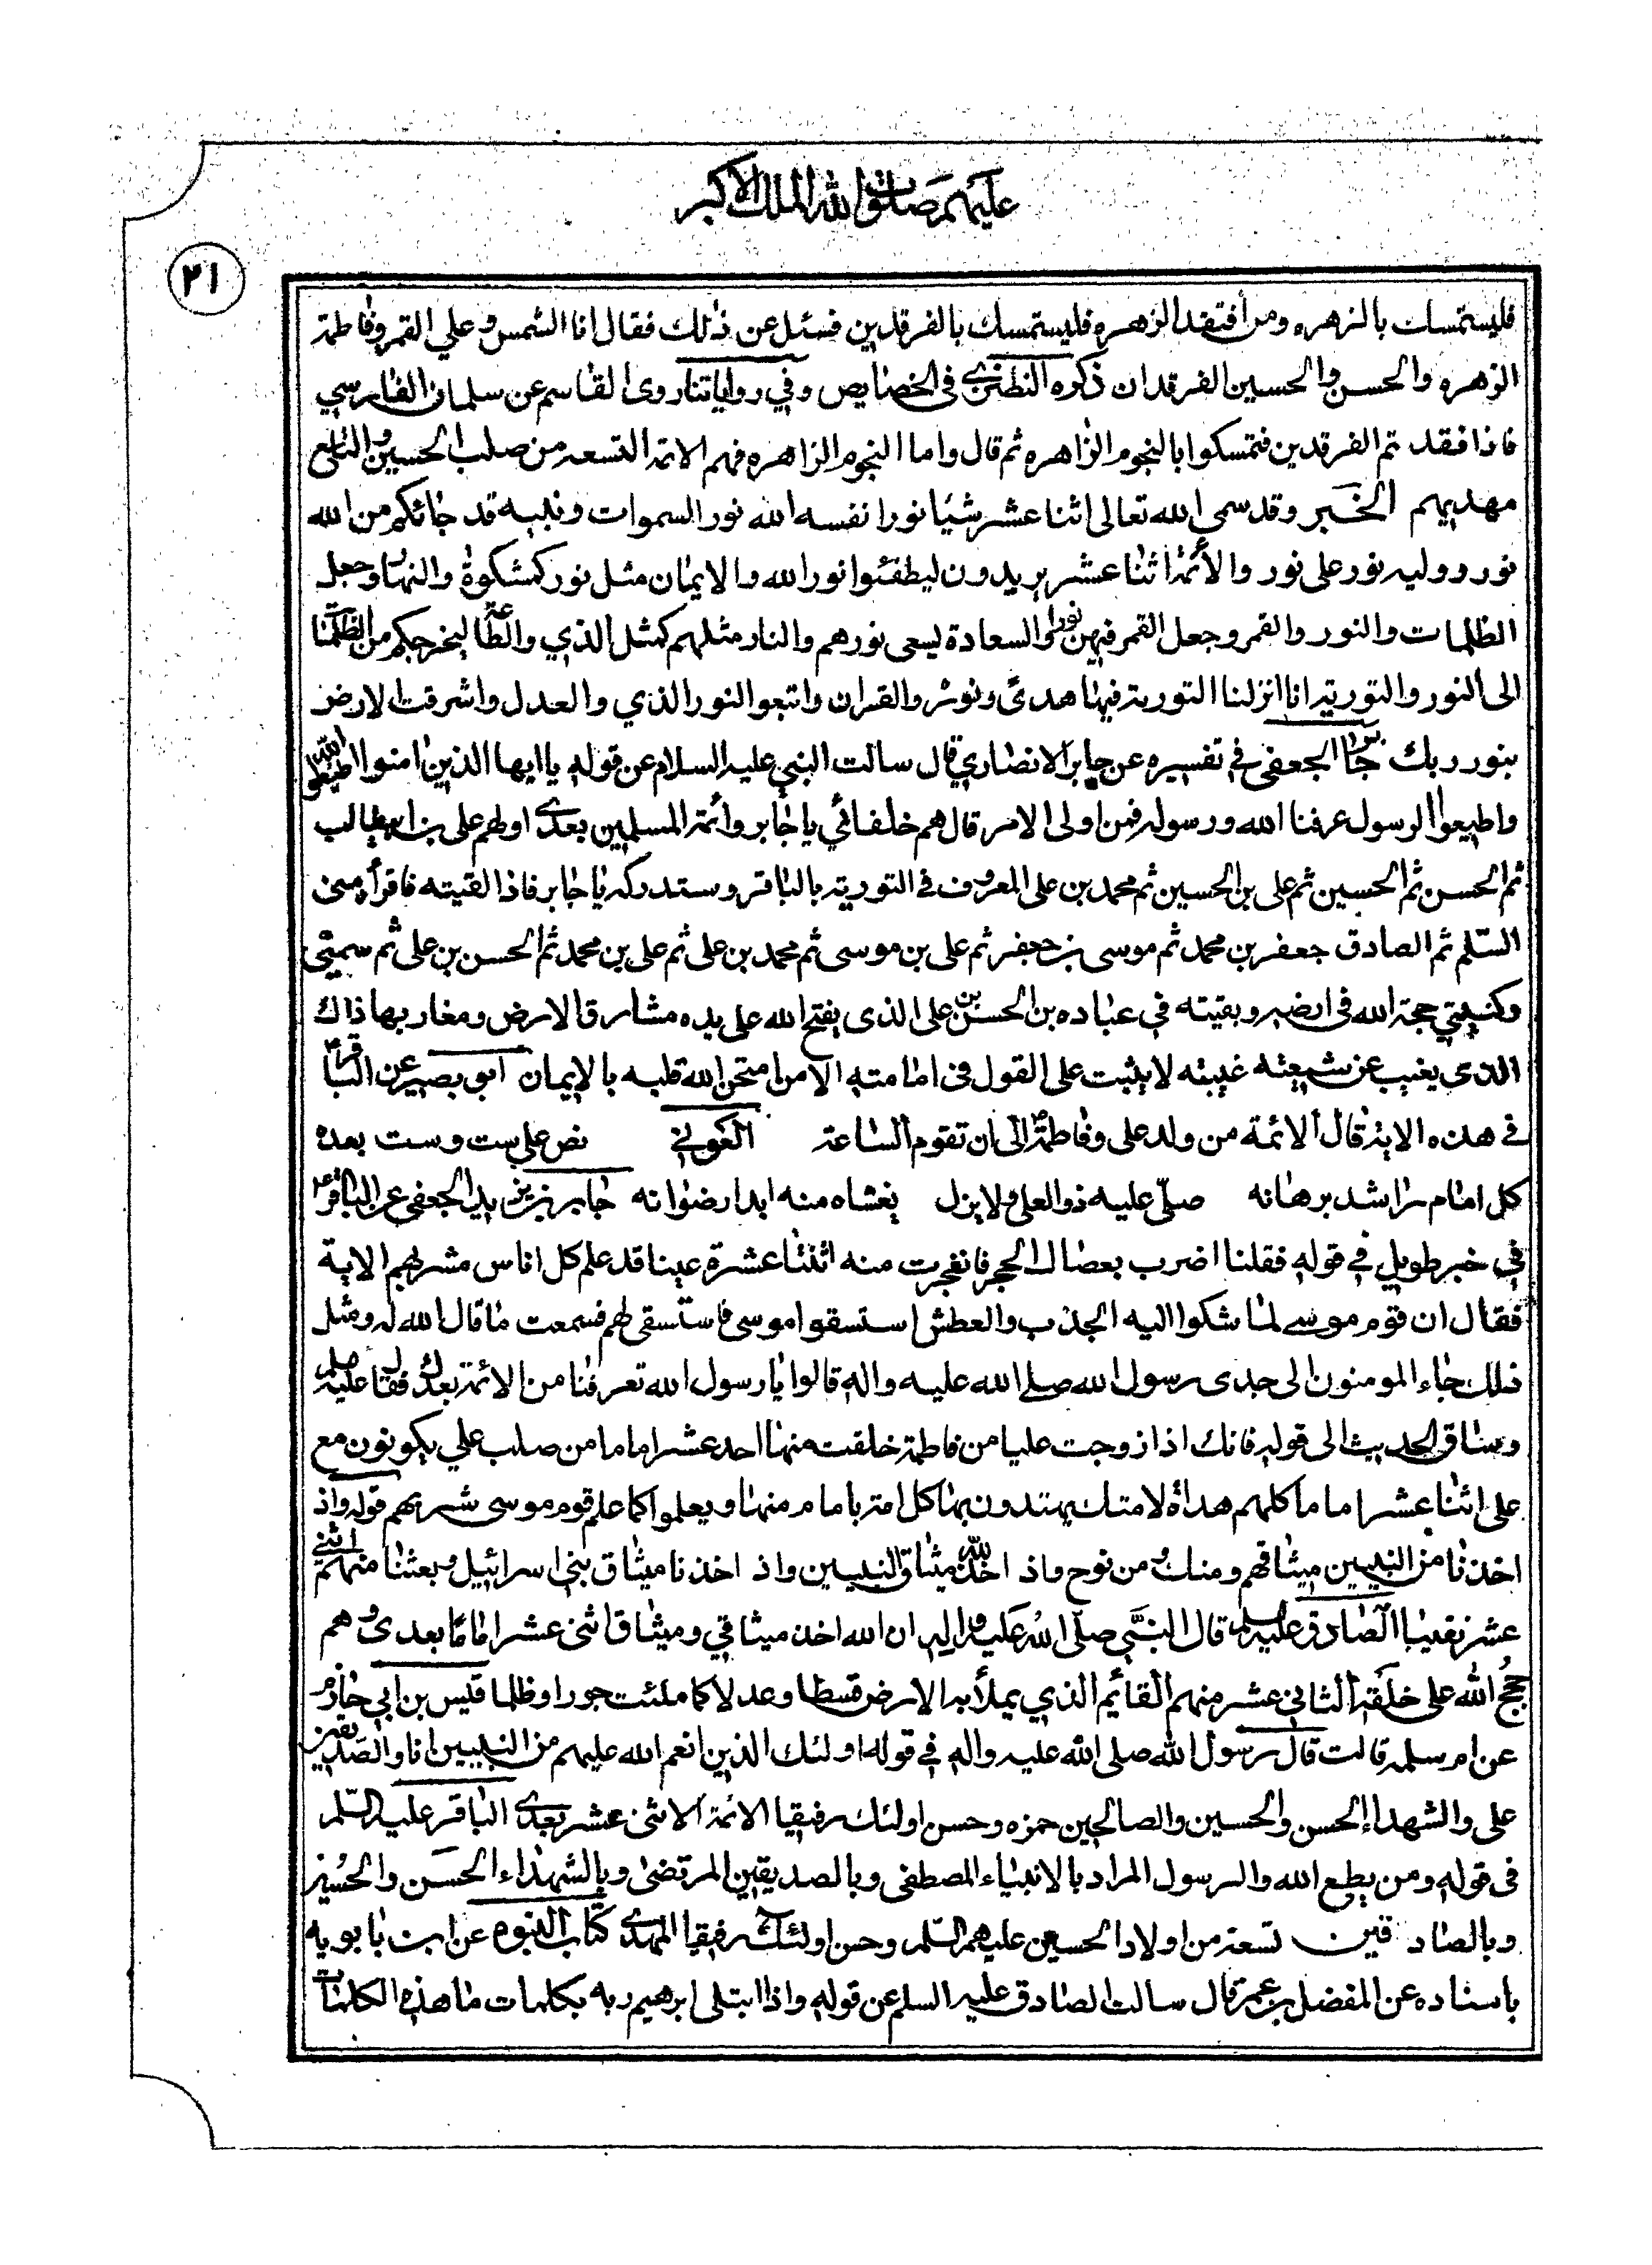 عليهم صلوات الله الملك الاكبر
٢١
فليستمسك بالزهره ومن أفتقد الزهره فليستمسك بالفرقدين فسئل عن ذلك فقال انا الشمس وعلي القمر وفاطمة
الزهره والحسن والحسين الفرقدان ذكره النطنزي في الخصايص وفي رواياتنا روى القاسم عن سلمان الفارسي
فاذا فقد تم الفرقدين فتمسكوا بالنجوم الزاهره ثم قال واما النجوم الزاهره فهم الائمة التسعه من صلب الحسين والتاسع
مهديهم الخبر وقد سمى الله تعالى اثنا عشر شيئا نورا نفسه الله نور السموات ونبيه قد جائكم من الله
نور ووليه نور على نور والأئمة اثنا عشر يريدون ليطفئوا نور الله والايمان مثل نور كمشكوة والنهار وجعل
الظلمات والنور والقمر وجعل القمر فيهن نورا والسعادة يسعى نورهم والنار مثلهم كمثل الذي والطاعة ليخرجكم من الظلمات
الى النور والتورية انا انزلنا التورية فيها هدىً ونور والقران واتبعوا النور الذي والعدل واشرقت الارض
بنور ربك جابر الجعفي في تفسيره عن جابر الانصاري قال سالت النبي عليه السلام عن قوله يا ايها الذين امنوا اطيعوا الله
واطيعوا الرسول عرفنا الله ورسوله فمن اولى الامر قال هم خلفائي يا جابر وأئمة المسلمين بعدي اولهم على بن ابيطالب
ثم الحسن ثم الحسين ثم على بن الحسين ثم محمد بن على المعروف في التورية بالباقر وستدركه يا جابر فاذا لقيته فاقرأه منى
السّلم ثم الصادق جعفر بن محمد ثم موسى بن جعفر ثم على بن موسى ثم محمد بن على ثم على بن محمد ثم الحسن بن على ثم سميّى
وكنيتي حجة الله في ارضه وبقيته في عباده بن الحسن بن على الذى يفتح الله على يده مشارق الارض ومغاربها ذاك
الذي يغيب عن شيعته غيبته لا يثبت على القول في امامته الا من امتحن الله قلبه بالايمان ابو بصير عن الباقر
في هذه الاية قال الائمة من ولد على وفاطمة الى ان تقوم الساعة العوني نص على ست وست بعده
كل امام راشد برهانه صلّى عليه ذو العلى ولا يزل يغشاه منه ابدا رضوانه جابر بن يزيد الجعفي عن الباقر
في خبر طويل في قوله فقلنا اضرب بعصاك الحجر فانفجرت منه اثنتا عشرة عينا قد علم كل اناس مشربهم الاية
فقال ان قوم موسى لما شكوا اليه الجذب والعطش استسقوا موسى فاستسقى لهم فسمعت ما قال الله له ومثل
ذلك جاء المومنون الى جدى رسول الله صلى الله عليه واله قالوا يا رسول الله تعرفنا من الائمة بعدك فقال عليه
وساق الحديث الى قوله فانك اذا زوجت عليا من فاطمة خلقت منها احد عشر اماما من صلب على يكونون مع
على اثنا عشر اماما كلهم هداة لامتك يهتدون بها كل امة بامام منها ويعلموا كما علم قوم موسى شربهم قوله واذ
اخذنا من النبيين ميثاقهم ومنك ومن نوح واذ اخذ الله ميثاق النبيين واذ اخذنا ميثاق بني اسرائيل وبعثنا منهم اثني
عشر نقيبا الصادق عليه السلم قال النّبي صلّى الله عليه واله ان الله اخذ ميثاقي وميثاق اثنى عشر اماما بعدى وهم
حجج الله على خلقه الثاني عشر منهم القائم الذي يملأ به الارض قسطا وعدلا كما ملئت جورا وظلما قيس بن ابي حازم
عن ام سلمه قالت قال رسول الله صلى الله عليه واله في قوله اولئك الذين انعم الله عليهم من النبيين انا والصديقين
على والشهداء الحسن والحسين والصالحين حمزه وحسن اولئك رفيقا الائمة الاثنى عشر بعدي الباقر عليه السّلم
في قوله ومن يطع الله والرسول المراد بالانبياء المصطفى وبالصديقين المرتضى وبالشهداء الحسن والحسين
وبالصادقين تسعة من اولاد الحسين عليهم السّلم وحسن اولئك رفيقا المهدي كتاب النبوه عن ابن بابويه
باسناده عن المفضل بن عمر قال سالت الصادق عليه السلم عن قوله واذا ابتلى ابرهيم ربه بكلمات ما هذه الكلمات